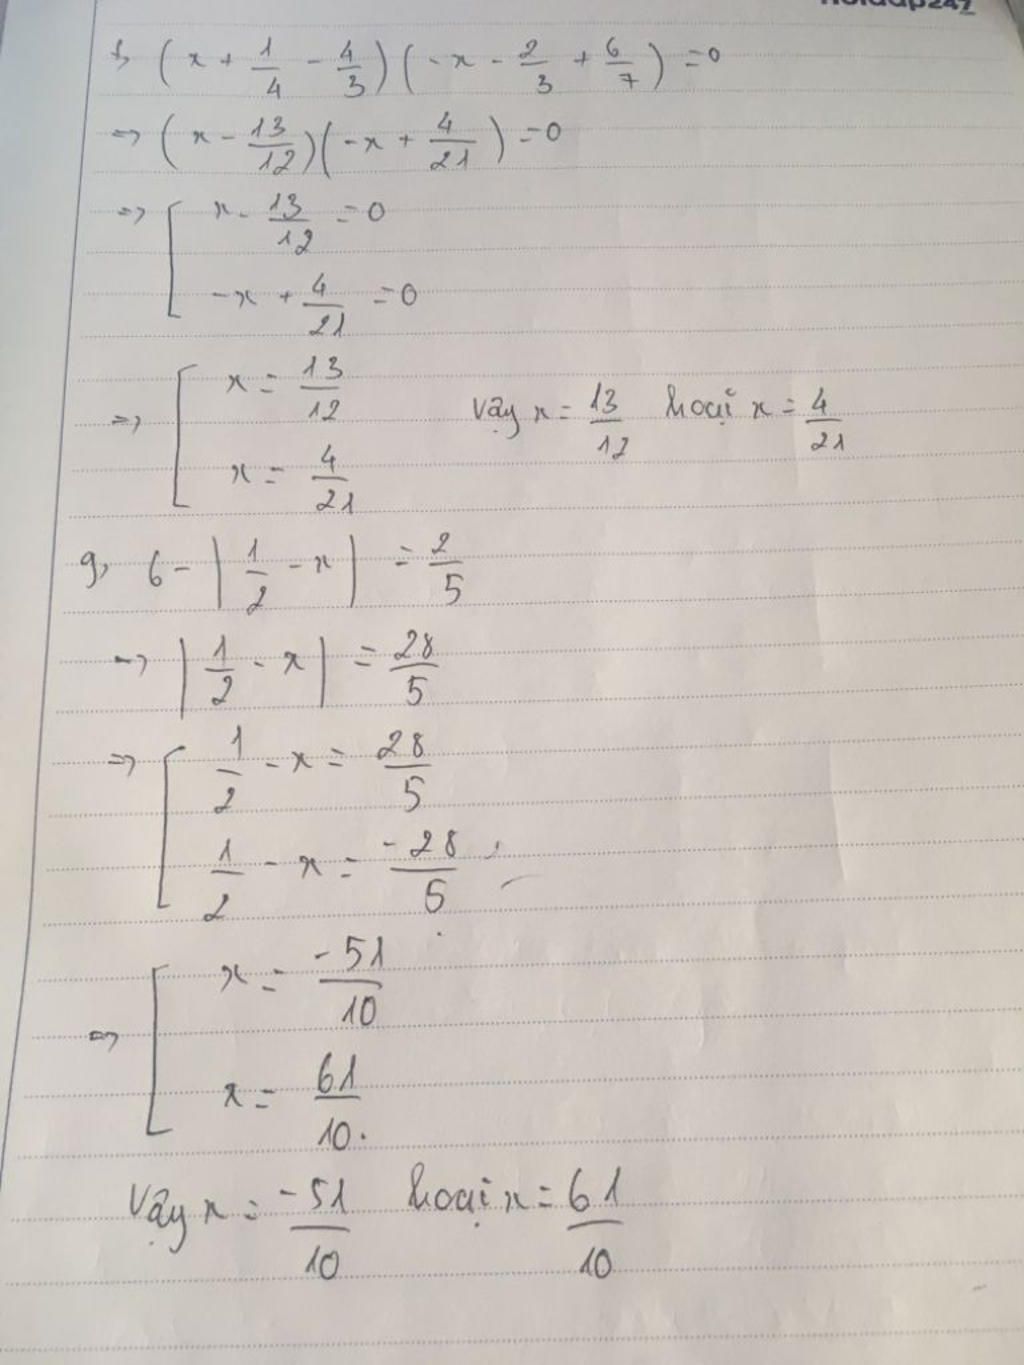 f, (x + 1/4 - 4/3)(-x - 2/3 + 6/7) = 0
=> (x - 13/12)(-x + 4/21) = 0
=> [ x - 13/12 = 0
-x + 4/21 = 0
=> [ x = 13/12
x = 4/21
Vậy x = 13/12 hoặc x = 4/21
g, 6 - |1/2 - x| = 2/5
=> |1/2 - x| = 28/5
=> [ 1/2 - x = 28/5
1/2 - x = -28/5
=> [ x = -51/10
x = 61/10.
Vậy x = -51/10 hoặc x = 61/10